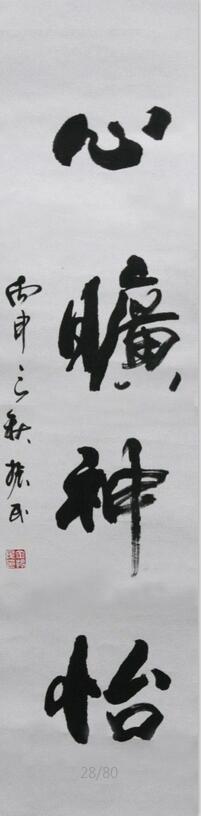 心曠神怡
丙申之秋振民
28/80